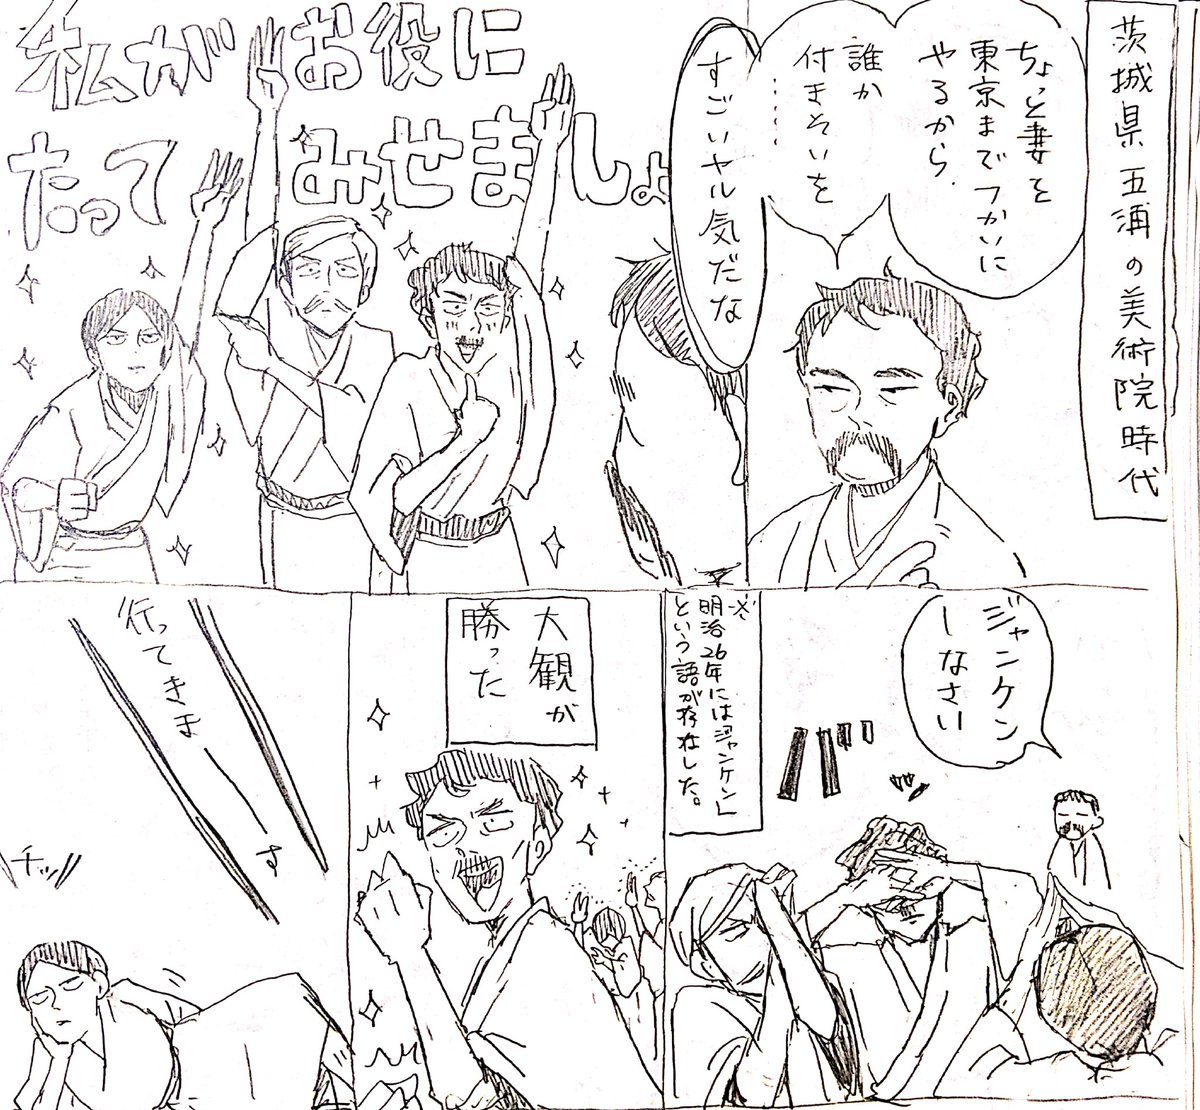 茨城県 五浦の美術院時代
ちょっと妻を
東京までつかいに
やるから、
誰か
付きそいを
……
すごいヤル気だな
私がお役に
たってみせましょ
ジャンケン
しなさい
バッ
※
明治26年には「ジャンケン」
という語が存在した。
大観が
勝った
行ってきまーーす
チッ